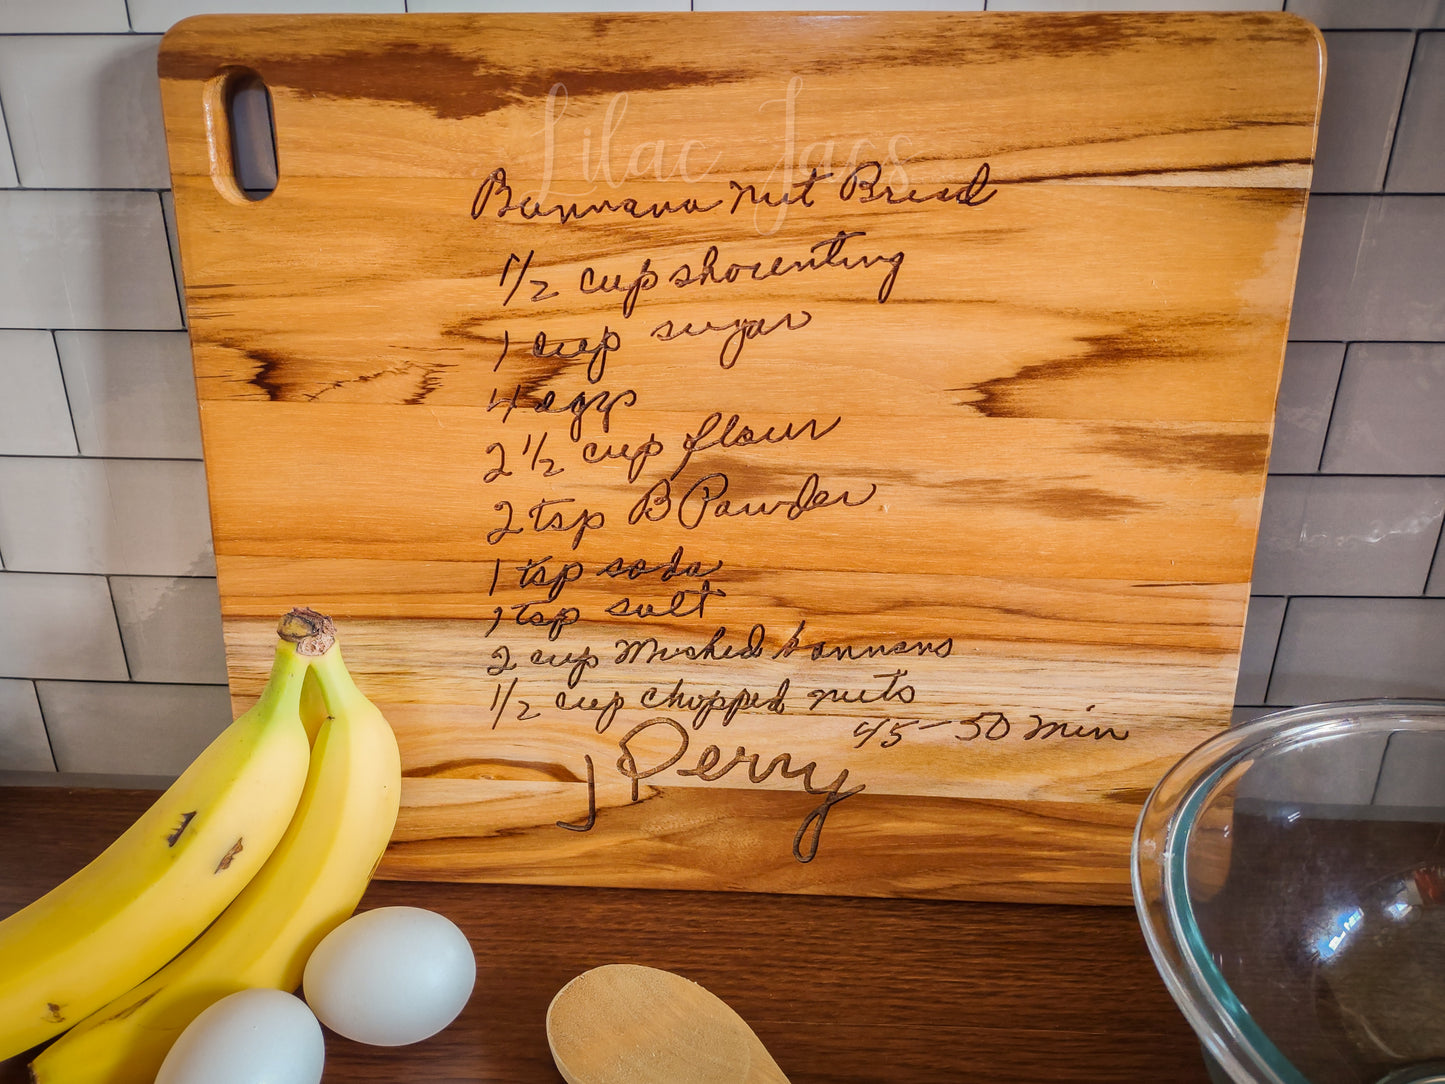 Lilac Jacs
Bannana nut Bread
1/2 cup shorenting
1 cup sugar
4 eggs
2 1/2 cup flour
2 tsp B Powder
1 tsp soda
1 tsp salt
2 cup Mashed bannans
1/2 cup chopped nuts
45-50 min
J Perry